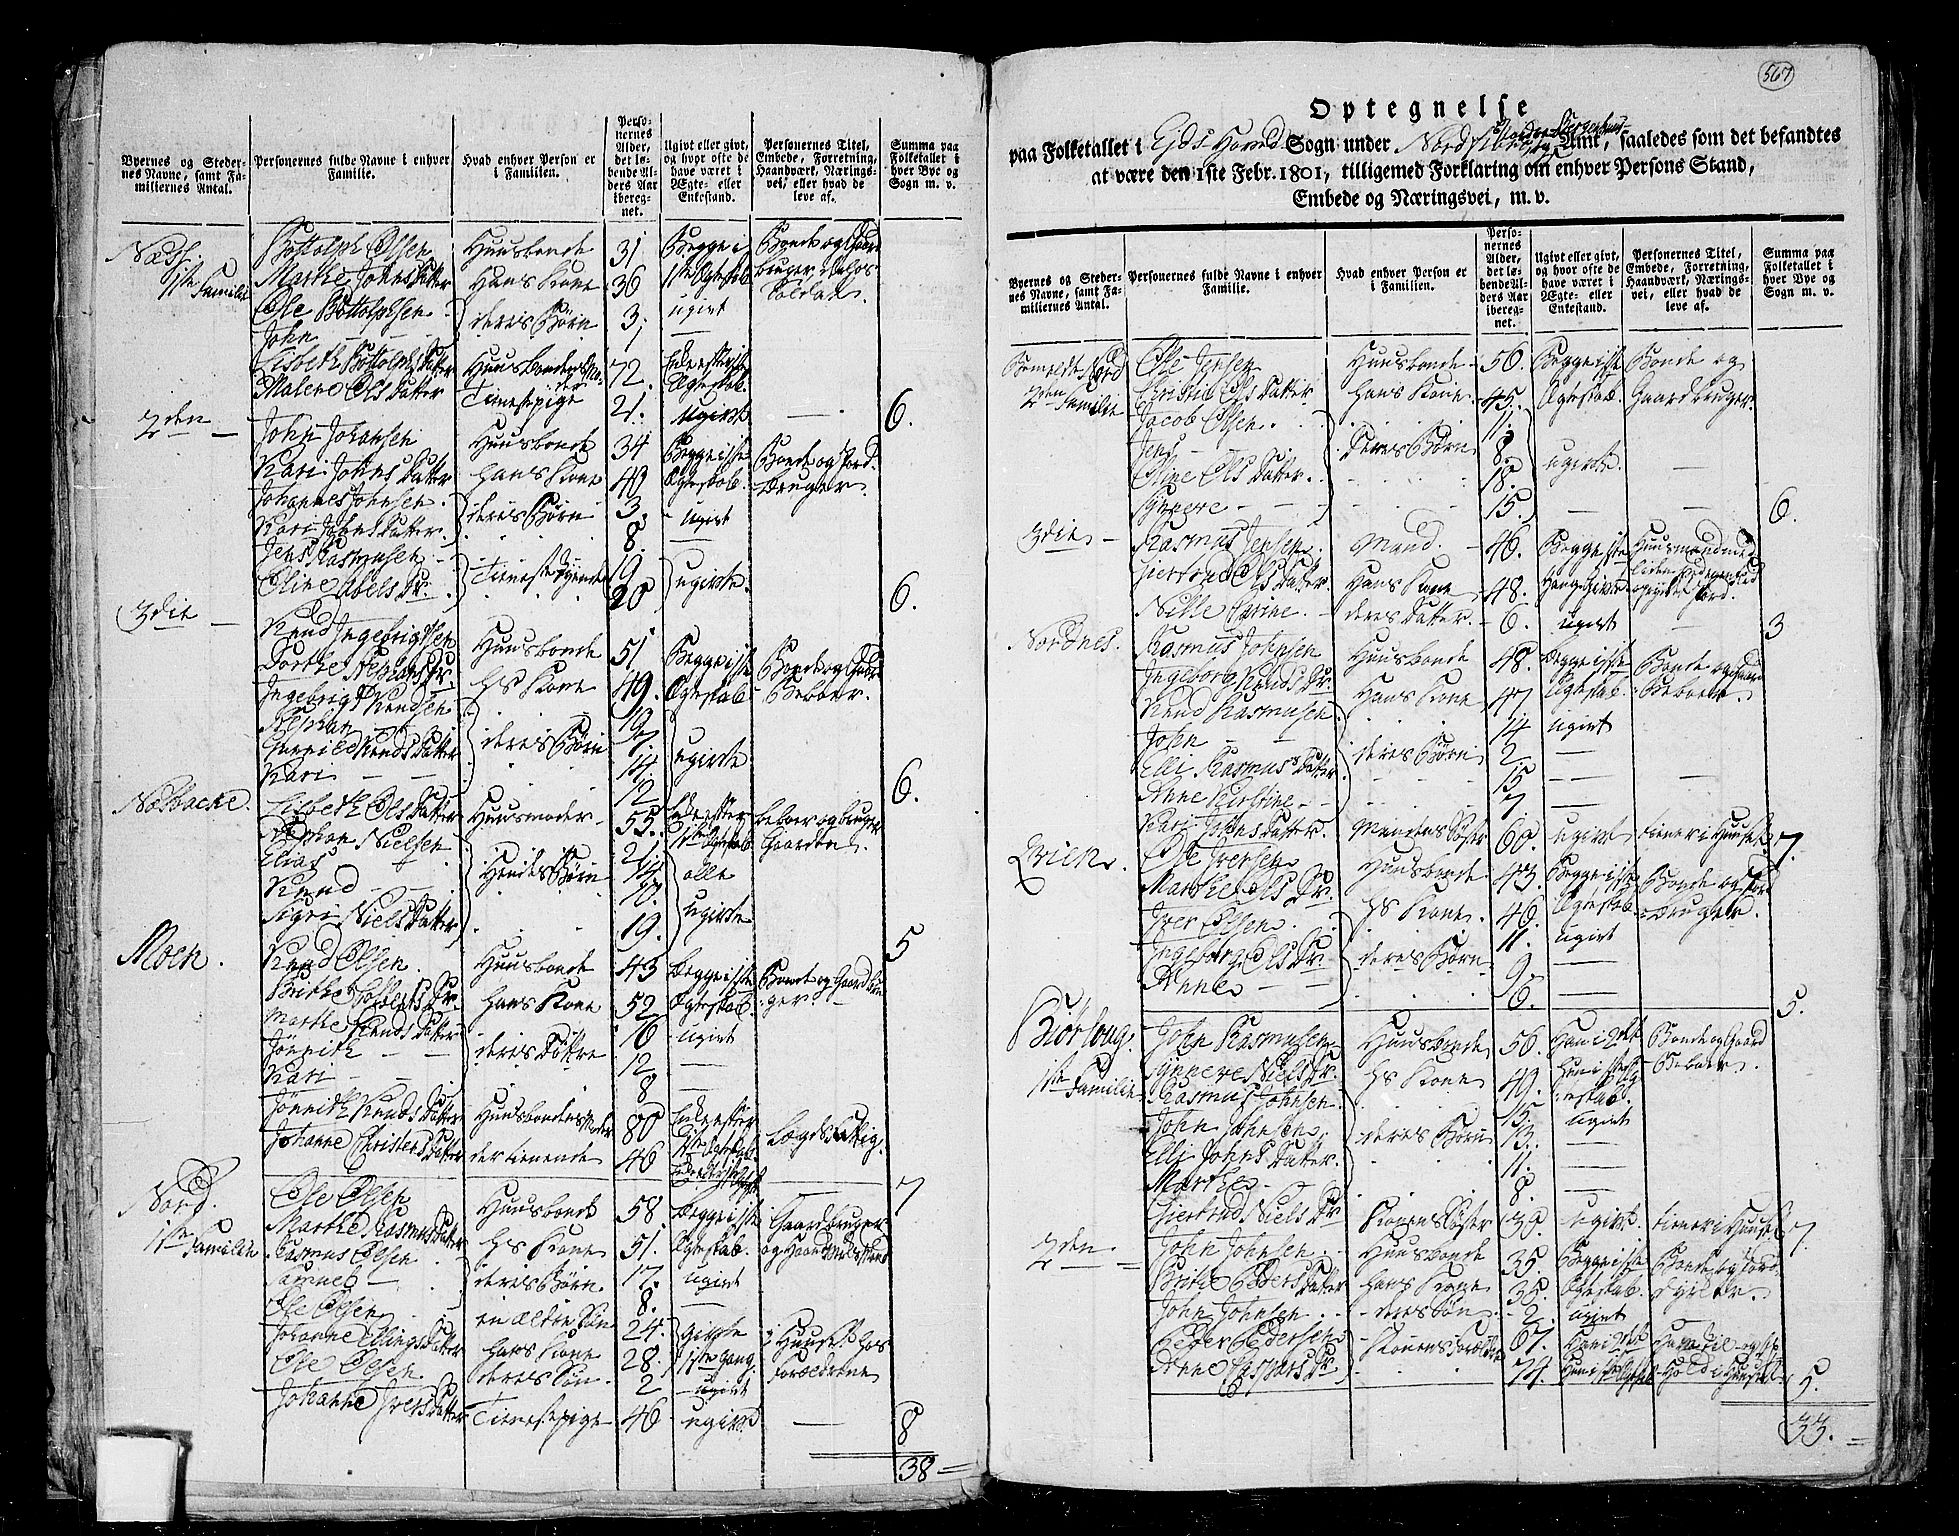 Byernes og Steder-
nes Navne, samt Fa-
miliernes Antal.
Personernes fulde Navne i enhver
Familie.
Hvad enhver Person er
i Familien.
Perso-
nernes
Alder,
det lø-
bende Al-
ders Aar
iberég-
net.
Ugivt eller givt,
og hvor ofte de
have været i
Ægte- eller
Enkestand.
Personernes Titel,
Embede, Forretning,
Haandværk, Nærings-
vei, eller hvad de
leve af.
Summa paa
Folketallet i
hver Bye og
Sogn m. v.
Bottolph Olsen Huusbonde 31 Begge i
1ste Familie Marthe Johns Datter Hans Kone 36 1ste Ægteskab Soldat.
Ole Bottolphsen deres Børn 3. ugivt
John — 1
Lisbeth Bottolphs Datter Huusbondens Moder 72.
Malene Ols Datter Tienestepige 21. ugivt — 6.
2den — John Johansen Huusbonde 34 Begge i 1ste Bonde og Jord-
Kari Johns Datter Hans Kone 49 Ægteskab. bruger.
Johannes Johnsen deres Børn 3. ugivt
Kari Johns Datter 8. —
Jens Rasmusen Tienestetyende 19. ugivte.
Oline Abels Dr. 20 6.
3die — Knud Ingebrigtsen Huusbonde 51 Begge i 1ste Bonde og Gaard
Dorthe Stephans Dr. Hs Kone 49. Ægteskab Beboer.
Ingebrigt Knudsen 19
Stephan — deres Børn 7. ugivte
Gunnild Knuds Datter 14.
Kari — — 12. 6.
Lisbeth Ols Datter Huusmoder 55. beboer og bruger
Stephan Nielsen 21 1ste Ægteskab Gaarden
Elias Hendes Børn 14. alle
Knud — — 10. ugivte
Sigri Niels Datter 19. 5
Moen. Knud Olsen Huusbonde 43 Begge i 1ste Bonde og Gaardbru-
Brithe Dr. Hans Kone 52 Ægteskab ger
Marthe Knuds Datter 16 ugivt
Jönnith — — deres Døttre 12 —
Kari — — 8 —
Jönnith Knuds Datter Huusbondens Moder 80
Johanne Christens Datter der tienende 46 7
Nord. Ole Olsen Huusbonde 58 Begge i 1ste Gaardbruger
1ste Familie Marthe Rasmus Datter Hs Kone 51. Ægteskab.
Rasmus Olsen deres Børn 17. ugivt
Samuel — 8. —
Ole Olsen en ældre Søn 24. givte i Huuset hos
Johanne Ellings Datter hans Kone 28. 1ste Gang Forældrene
Ole Olsen deres Søn 2 ugivt
Johanne Ivers Datter Tienestepige 46 ugivt — 8
38
567
Optegnelse
paa Folketallet i Ejds-Hored Sogn under Nordre Bergenhus Amt, saaledes som det befandtes
at være den 1ste Febr. 1801, tilligemed Forklaring om enhver Persons Stand,
Embede og Næringsvei, m. v.
Byernes og Steder-
nes Navne, samt Fa-
miliernes Antal.
Personernes fulde Navne i enhver
Familie.
Hvad enhver Person er
i Familien.
Perso-
nernes
Alder,
det lø-
bende Al-
ders Aar
iberég-
net.
Ugivt eller givt,
og hvor ofte de
have været i
Ægte- eller
Enkestand.
Personernes Titel,
Embede, Forretning,
Haandværk, Nærings-
vei, eller hvad de
leve af.
Summa paa
Folketallet i
hver Bye og
Sogn m. v.
Nord Ole Jensen Huusbonde 56. Begge i 1ste Bonde og
2den Familie Christie Ols Datter Hans Kone 45. Ægteskab. Gaardbruger.
Jacob Olsen 11.
Jens — Deres Børn 8. ugivte. —
Oline Ols Datter 18.
Synneve — — 15. — — 6.
3die — Rasmus Jensen Mand. 46. Begge 1ste Huusmand med
Giertrud Ols Datter Hans Kone 48. Gang givt Jord.
Nille Carine deres Datter 6. ugivt — 3
Nordnes. Rasmus Johnsen Huusbonde 48. Begge i 1ste Bonde og Gaard
Ingeborg Knuds Dr. Hans Kone 47 Ægteskab. Beboer
Knud Rasmusen 14 ugivt
John — — deres Børn 2 —
Elli Rasmus Datter 15 — —
Anne Kirstine — 7 —
Kari Johns Datter. Mandens Søster 60. ugivt tiener i Huuset 7.
Ole Iversen Huusbonde 43. Begge i 1ste Bonde og Jord
Marthe Ols Dr. Hs Kone 46. Ægteskab bruger.
Iver Olsen 11. ugivt
Ingeborg Ols Dr. deres Børn 9. —
Anne — — 6. — 5.
Biørloug. John Rasmusen Huusbonde 56. Han i 2det Bonde og Gaard
1ste Familie Synneve Niels Dr. Hs Kone 49. Hun i 1ste Æg- Beboer.
Rasmus Johnsen 15. teskab.
John Johnsen deres Børn 13. ugivt
Elli Johns Datter. 11. —
Marthe — 8. —
Giertrud Niels Dr. Konens Søster 39 ugivt. tiener i Huuset 7.
2den — John Johnsen Huusbonde 35. Begge i 1ste Bonde og Jord-
Brithe Peders Datter Hans Kone 35. Ægteskab. dyrker.
John Johnsen deres Søn 2. ugivt
Peder Pedersen Konens Forældre 67. Han i 2det
Anne Caspars Dr. 74. Hun i 1ste 5.
33.